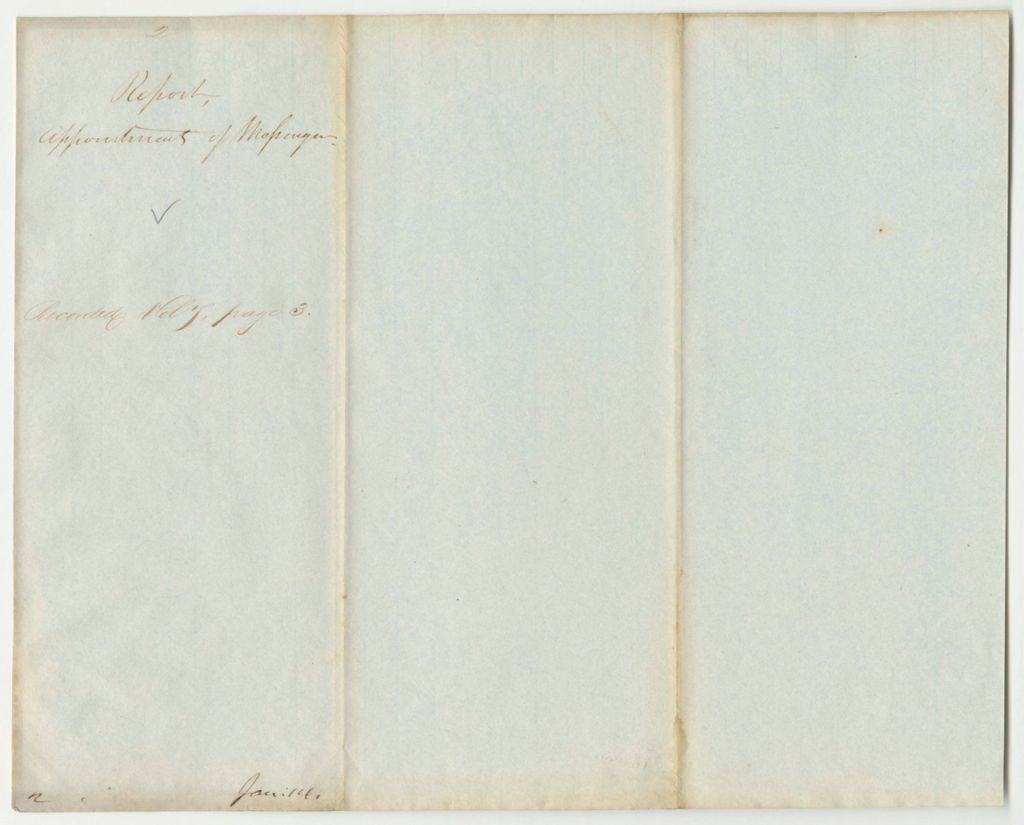 2
Report,
Appointment of Messenger
✓
Recorded Vol 7, page 3.
2